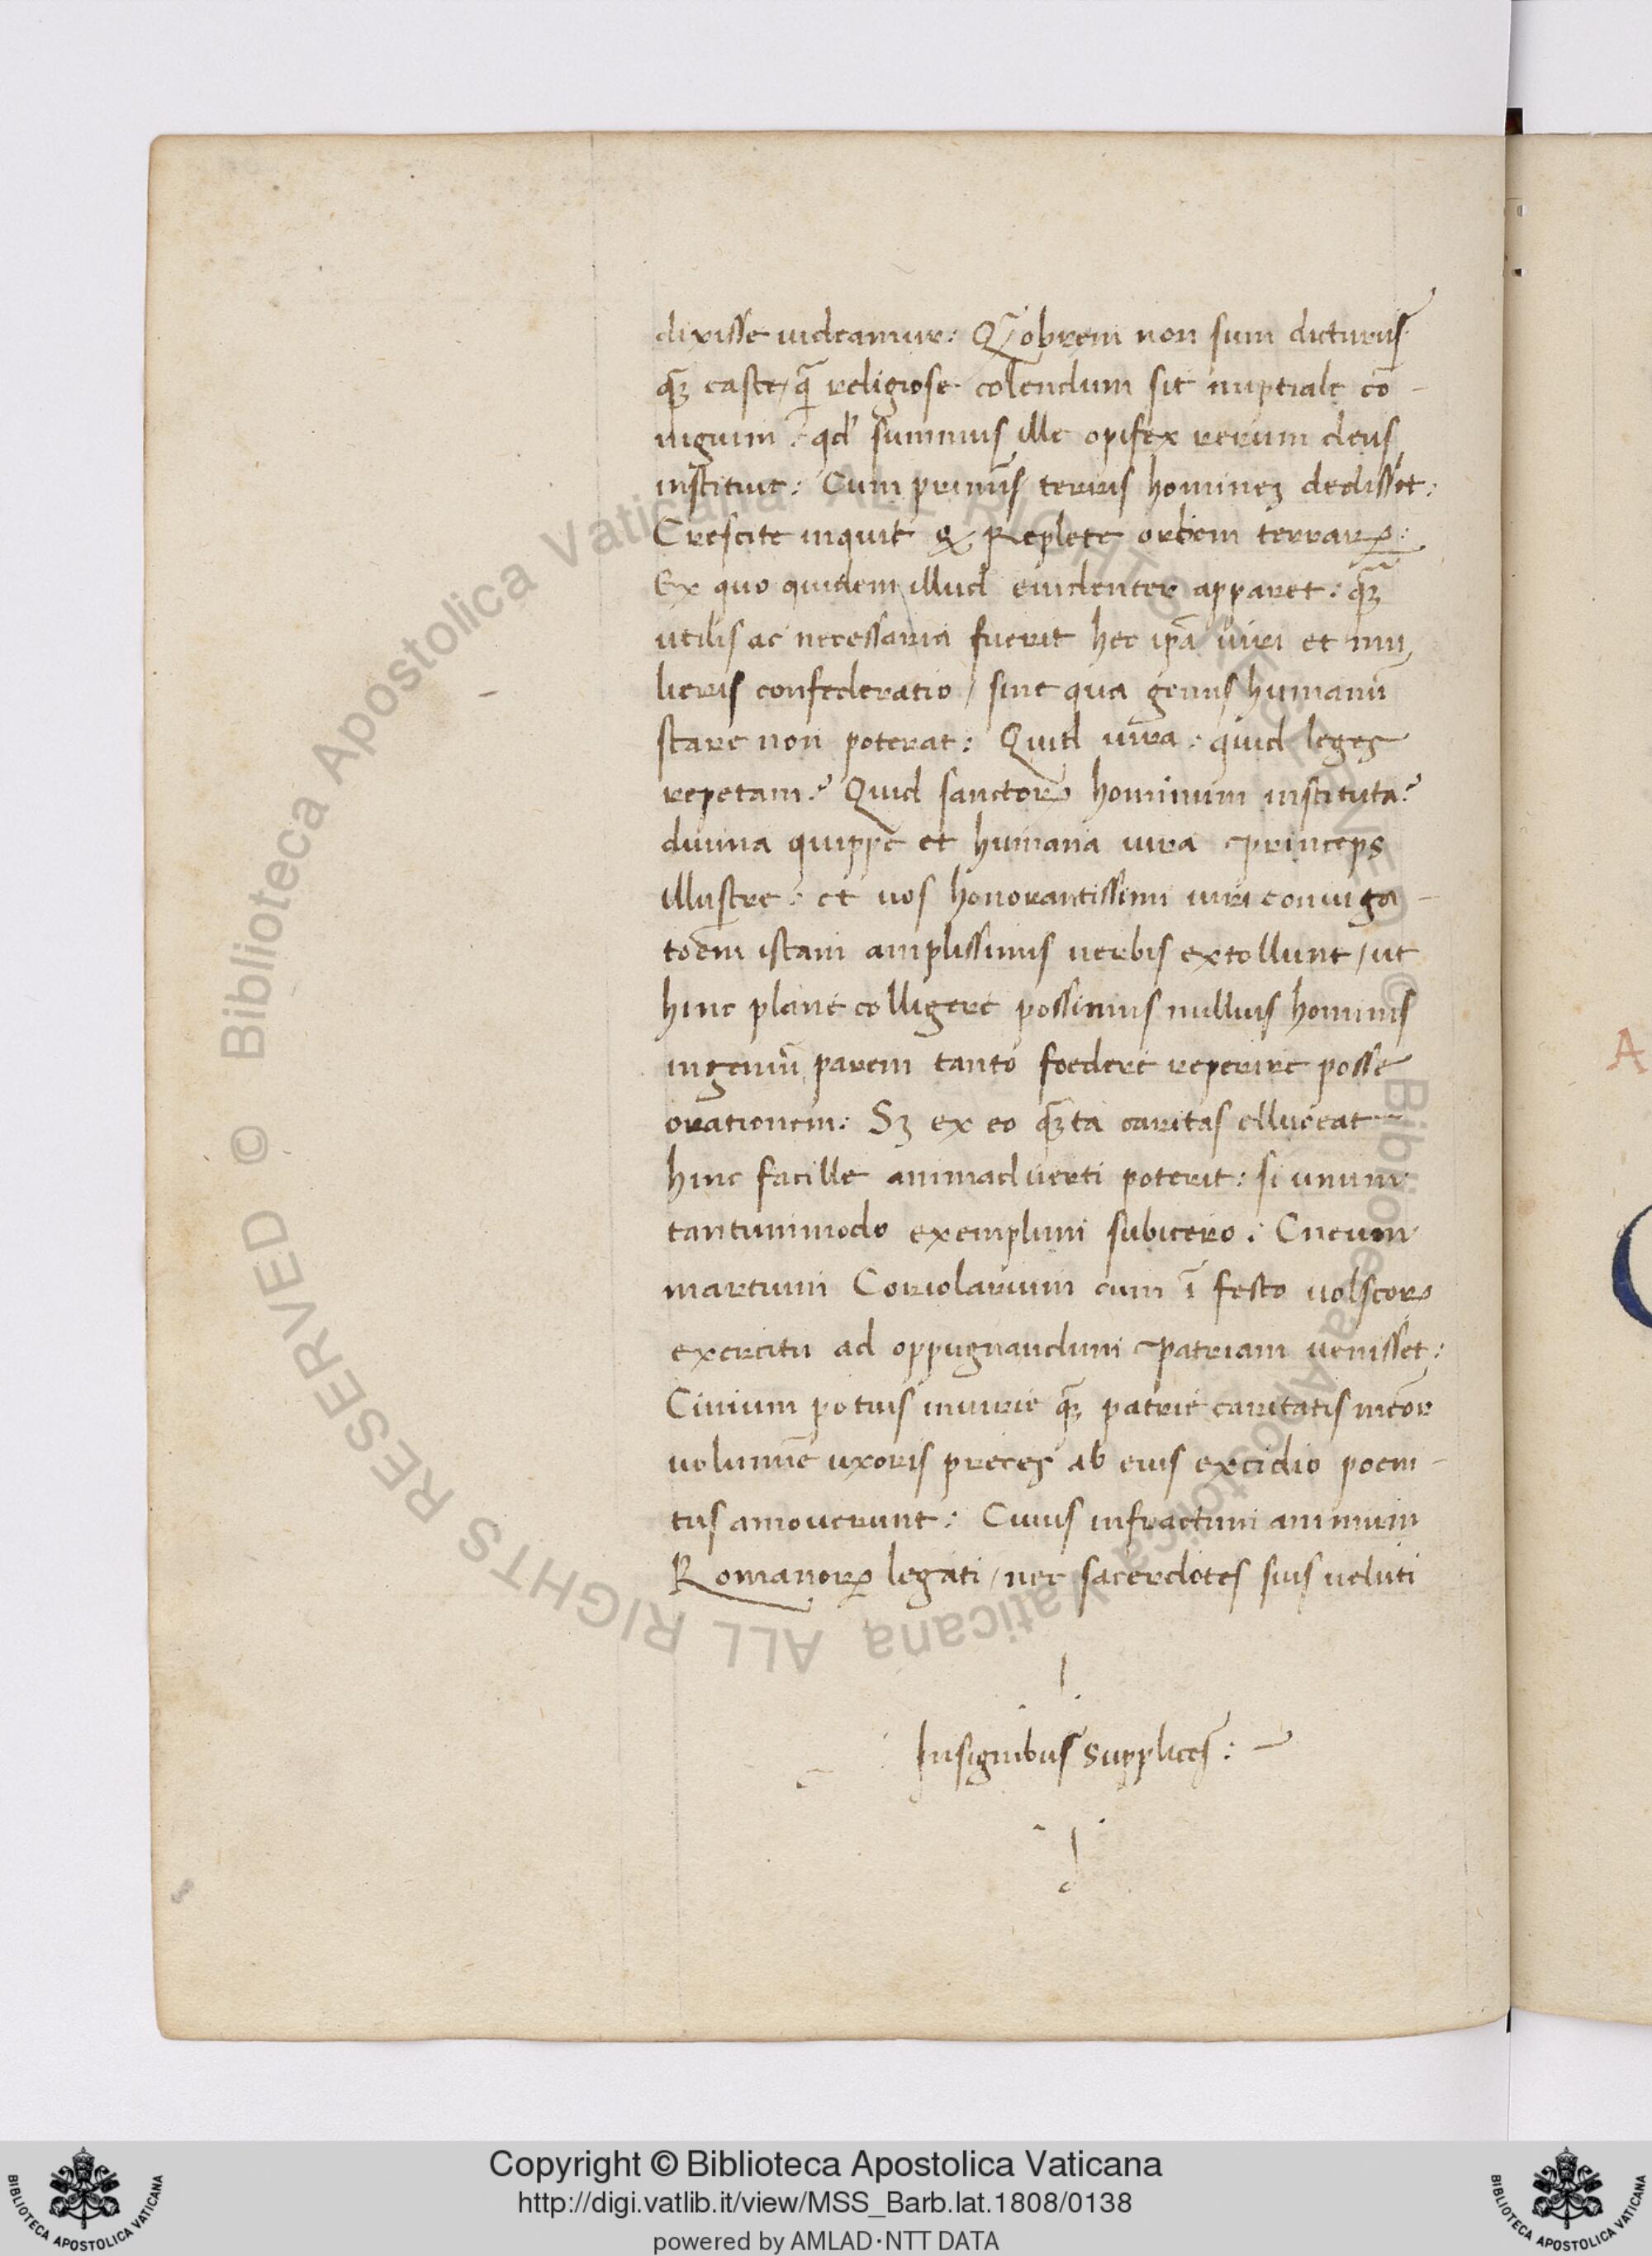 dixisse uideamur: Qobrem non sum dicturus
qȝ caste, q̄ religiose colendum sit nuptiale co-
niugium: qd' summus ille opifex rerum deus
instituit: Cum primus terris hominez dedisset:
Crescite inquit & Replete orbem terraꝝ:
Ex quo quidem illud euidenter apparet: qȝ
utilis ac necessaria fuerit hec ip̄a uiri et mu,
lieris confederatio, sine qua genus humanū
stare non poterat: Quid iura: quid leges
repetam? Quid sanctoꝝ hominum instituta?
diuina quippe et humana iura princeps
illustre: et uos honorantissimi uiri coniuga-
toēm istam amplissimis uerbis extollunt, ut
hinc plane colligere possimus nullius hominis
ingeniū parem tanto foedere reperire posse
orationem: Sȝ ex eo qȝta caritas elluceat
hinc facille animaduerti poterit: si unum
tantummodo exemplum subicero: Cneum
martium Coriolanum cum ī festo uolscoꝝ
exercitu ad oppugnandum patriam uenisset:
Ciuium potius iniurie qȝ patrie caritatis mēor
uolumne uxoris preces ab eius excidio poeni-
tus amouerunt: Cuius infractum animum
Romanoꝝ legati, nec sacerdotes suis ueluti
Insignibus supplices:
A
© Biblioteca Apostolica Vaticana ALL RIGHTS RESERVED © Biblioteca Apostolica Vaticana ALL RIGHTS RESERVED
Copyright © Biblioteca Apostolica Vaticana
http://digi.vatlib.it/view/MSS_Barb.lat.1808/0138
powered by AMLAD·NTT DATA
BIBLIOTECA APOSTOLICA VATICANA
BIBLIOTECA APOSTOLICA VATICANA